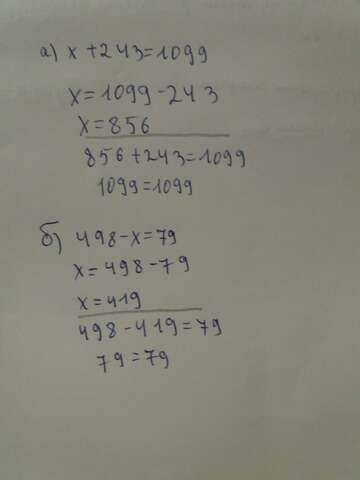 а) x+243=1099
x=1099-243
x=856
856+243=1099
1099=1099
б) 498-x=79
x=498-79
x=419
498-419=79
79=79